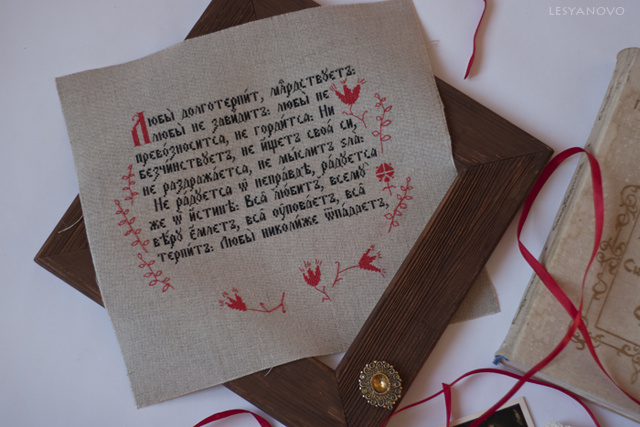 LESYANOVO
Любы̀ долготерпи́тъ, млⷭ҇рдствуетъ:
любы̀ не зави́дитъ: любы̀ не
превозно́сится, не горди́тся: Ни
безчи́нствуетъ, не и́щетъ своѧ̀ си,
не раздража́ется, не мы́слитъ ѕла:
Не ра́дуется ѡ҆ непра́вдѣ, ра́дуется
же ѡ҆ и́стинѣ: Всѧ̑ лю́битъ, всему̀
вѣ́ру є҆́млетъ, всѧ̑ оупова́етъ, всѧ̑
терпи́тъ: Любы̀ николи́же ѿпа́даетъ,